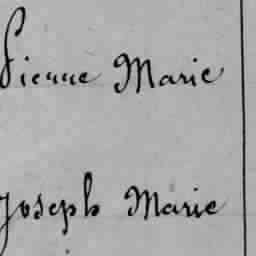 Pierre Marie
Joseph Marie